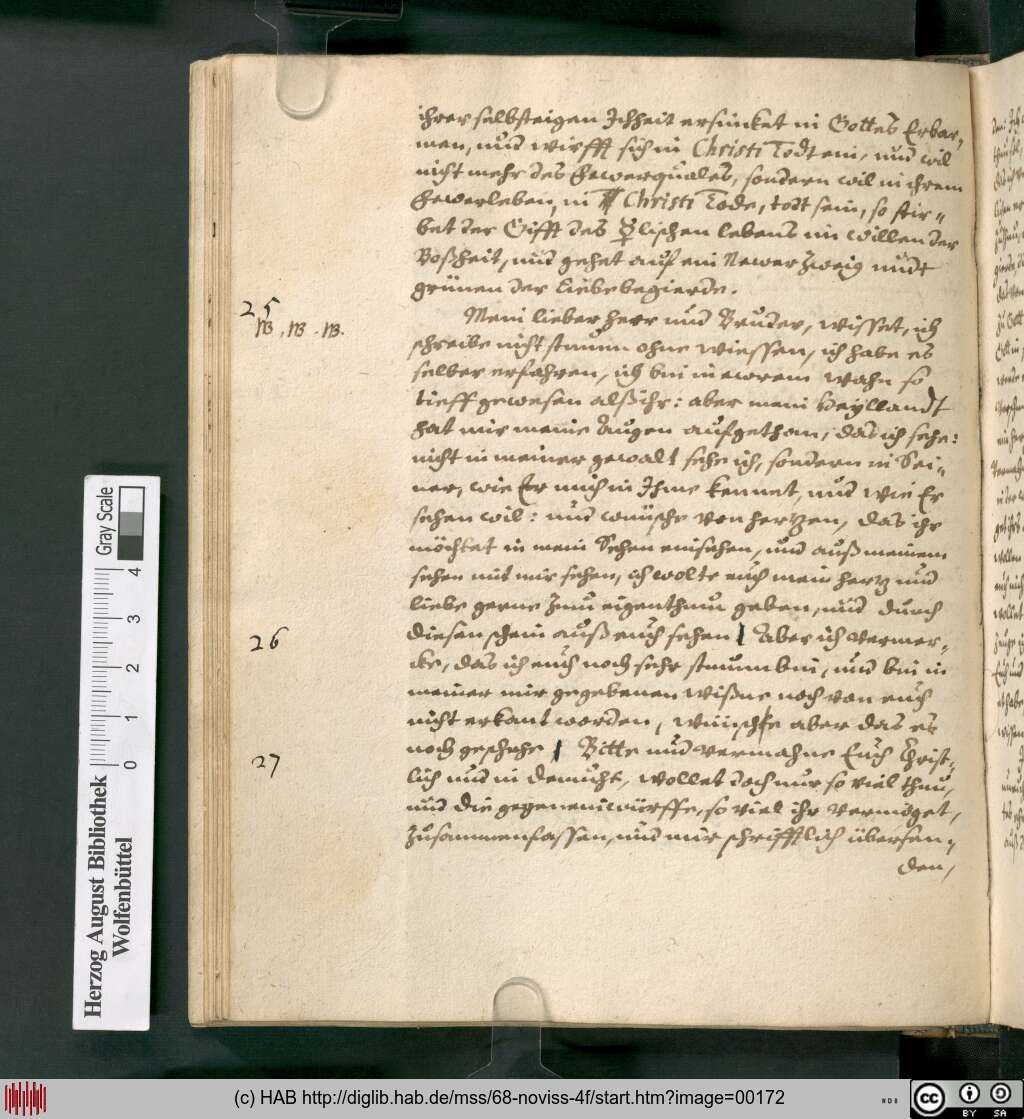 ihrer selbsteigen Ichheit ersincket in Gottes Erbar-
men, und wirfft sich in Christi Todt ein, und wil
nicht mehr des fewerquales, sondern wil in ihrem
fewerleben, in Christi Tode, todt sein, so stir-
bet der Gifft des ☿lischen lebens im willen der
Boßheit, und gehet auf ein Newer Zweig unde
grünen der liebebegierde.
25
NB. NB. NB.
Mein lieber Herr und Bruder, wisset, ich
schreibe nicht stumm ohne wiessen, ich habe es
selber erfahren, ich bin in ewrem wahn so
tieff gewesen alß ihr: aber mein Heyllandt
hat mir meine Augen aufgethan, das ich sehe:
nicht in meiner gewalt sehe ich, sondern in Sei-
ner, wie Er mich in Ihme kennet, und wie Er
sehen wil: und wünsche von hertzen, das ihr
möchtet in mein Sehen einsehen, und auß meinem
sehen mit mir sehen, ich wolte euch mein hertz und
liebe gerne zum eigenthum geben, und durch
26
diesen schein auß euch sehen | Aber ich vermer-
cke, das ich euch noch sehr stumm bin, und bin in
meiner mir gegebenen wißne noch von euch
nicht erkant worden, wünsche aber das es
27
noch geschehe | Bitte und vermahne Euch Christ-
lich und in demuht, wollet doch nur so viel thun,
und die gegeneinwürffe, so viel ihr vermöget,
zusammenfassen, und mir schrifftlich übersen-
den,
Gray Scale
4
3
2
1
0
Herzog August Bibliothek
Wolfenbüttel
(c) HAB http://diglib.hab.de/mss/68-noviss-4f/start.htm?image=00172
WDB
cc
BY SA